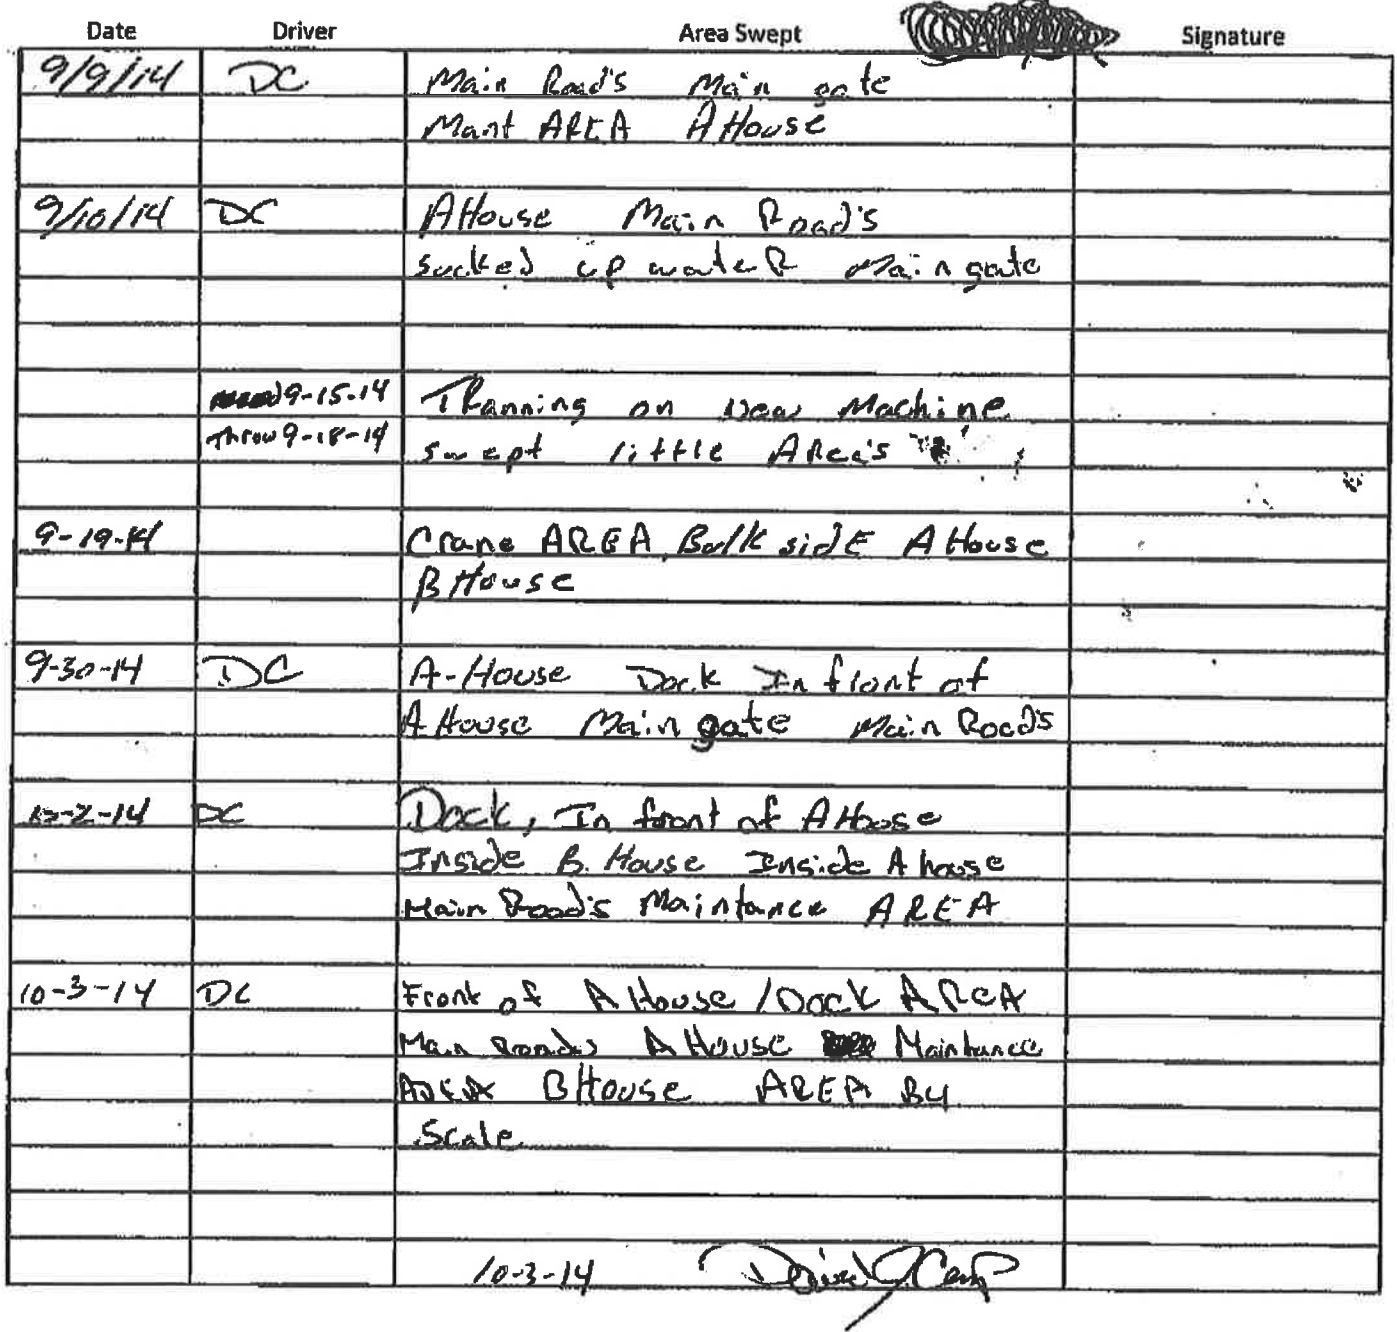 Date Driver Area Swept Signature
9/9/14 DC Main Road's Main gate
Mant AREA A House
9/10/14 DC A House Main Road's
sucked up wateR Main gate
9-15-14 TRanning on New Machine
Throw 9-18-14 swept little AReas
9-19-14 Crane AREA Bulk sidE A House
B House
9-30-14 DC A-House Dock In front of
A House Main gate Main Road's
10-2-14 DC Dock, In front of A House
Inside B. House Inside A house
Main Road's Maintance AREA
10-3-14 DC Front of A House / Dock AReA
Main Roads A House Maintance
AREA B House AREA By
Scale
10-3-14